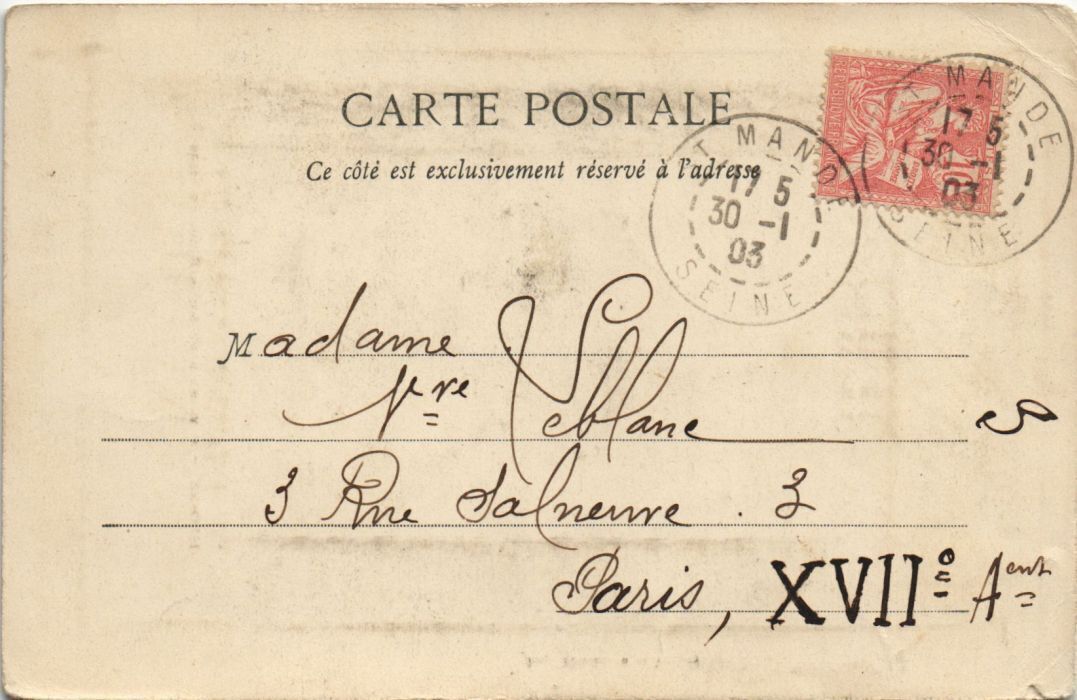 CARTE POSTALE
Ce côté est exclusivement réservé à l'adresse
T MANDE
17 5
30 -1
03
SEINE
T MANDE
17 5
30 -1
03
SEINE
10
Madame
Vve Leblanc
3 Rue Salneuve . 3
Paris, XVIIº Aent